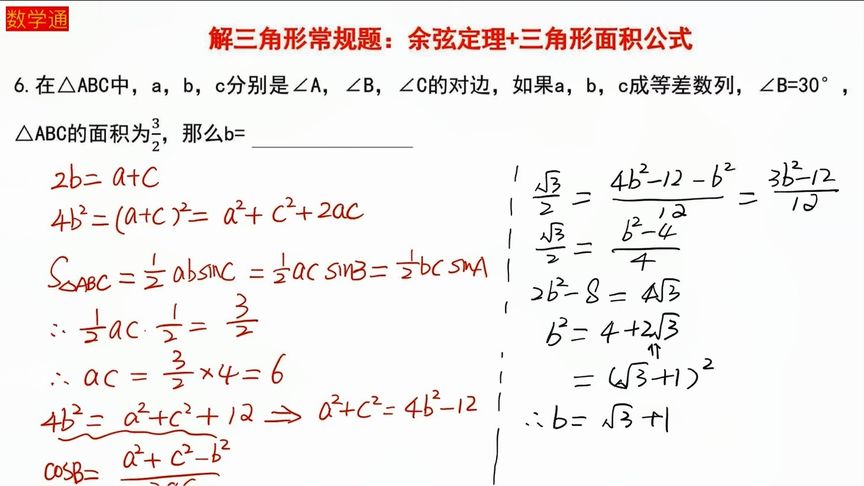 数学通
解三角形常规题：余弦定理+三角形面积公式
6. 在△ABC中，a，b，c分别是∠A，∠B，∠C的对边，如果a，b，c成等差数列，∠B=30°，
△ABC的面积为3/2，那么b=
2b=a+c
4b²=(a+c)²=a²+c²+2ac
S△ABC=1/2absinC=1/2acsinB=1/2bcsinA
∴1/2ac·1/2=3/2
∴ac=3/2×4=6
4b²=a²+c²+12⇒a²+c²=4b²-12
cosB=a²+c²-b²/2ac
√3/2=4b²-12-b²/12=3b²-12/12
√3/2=b²-4/4
2b²-8=4√3
b²=4+2√3
⇑
=(√3+1)²
∴b=√3+1